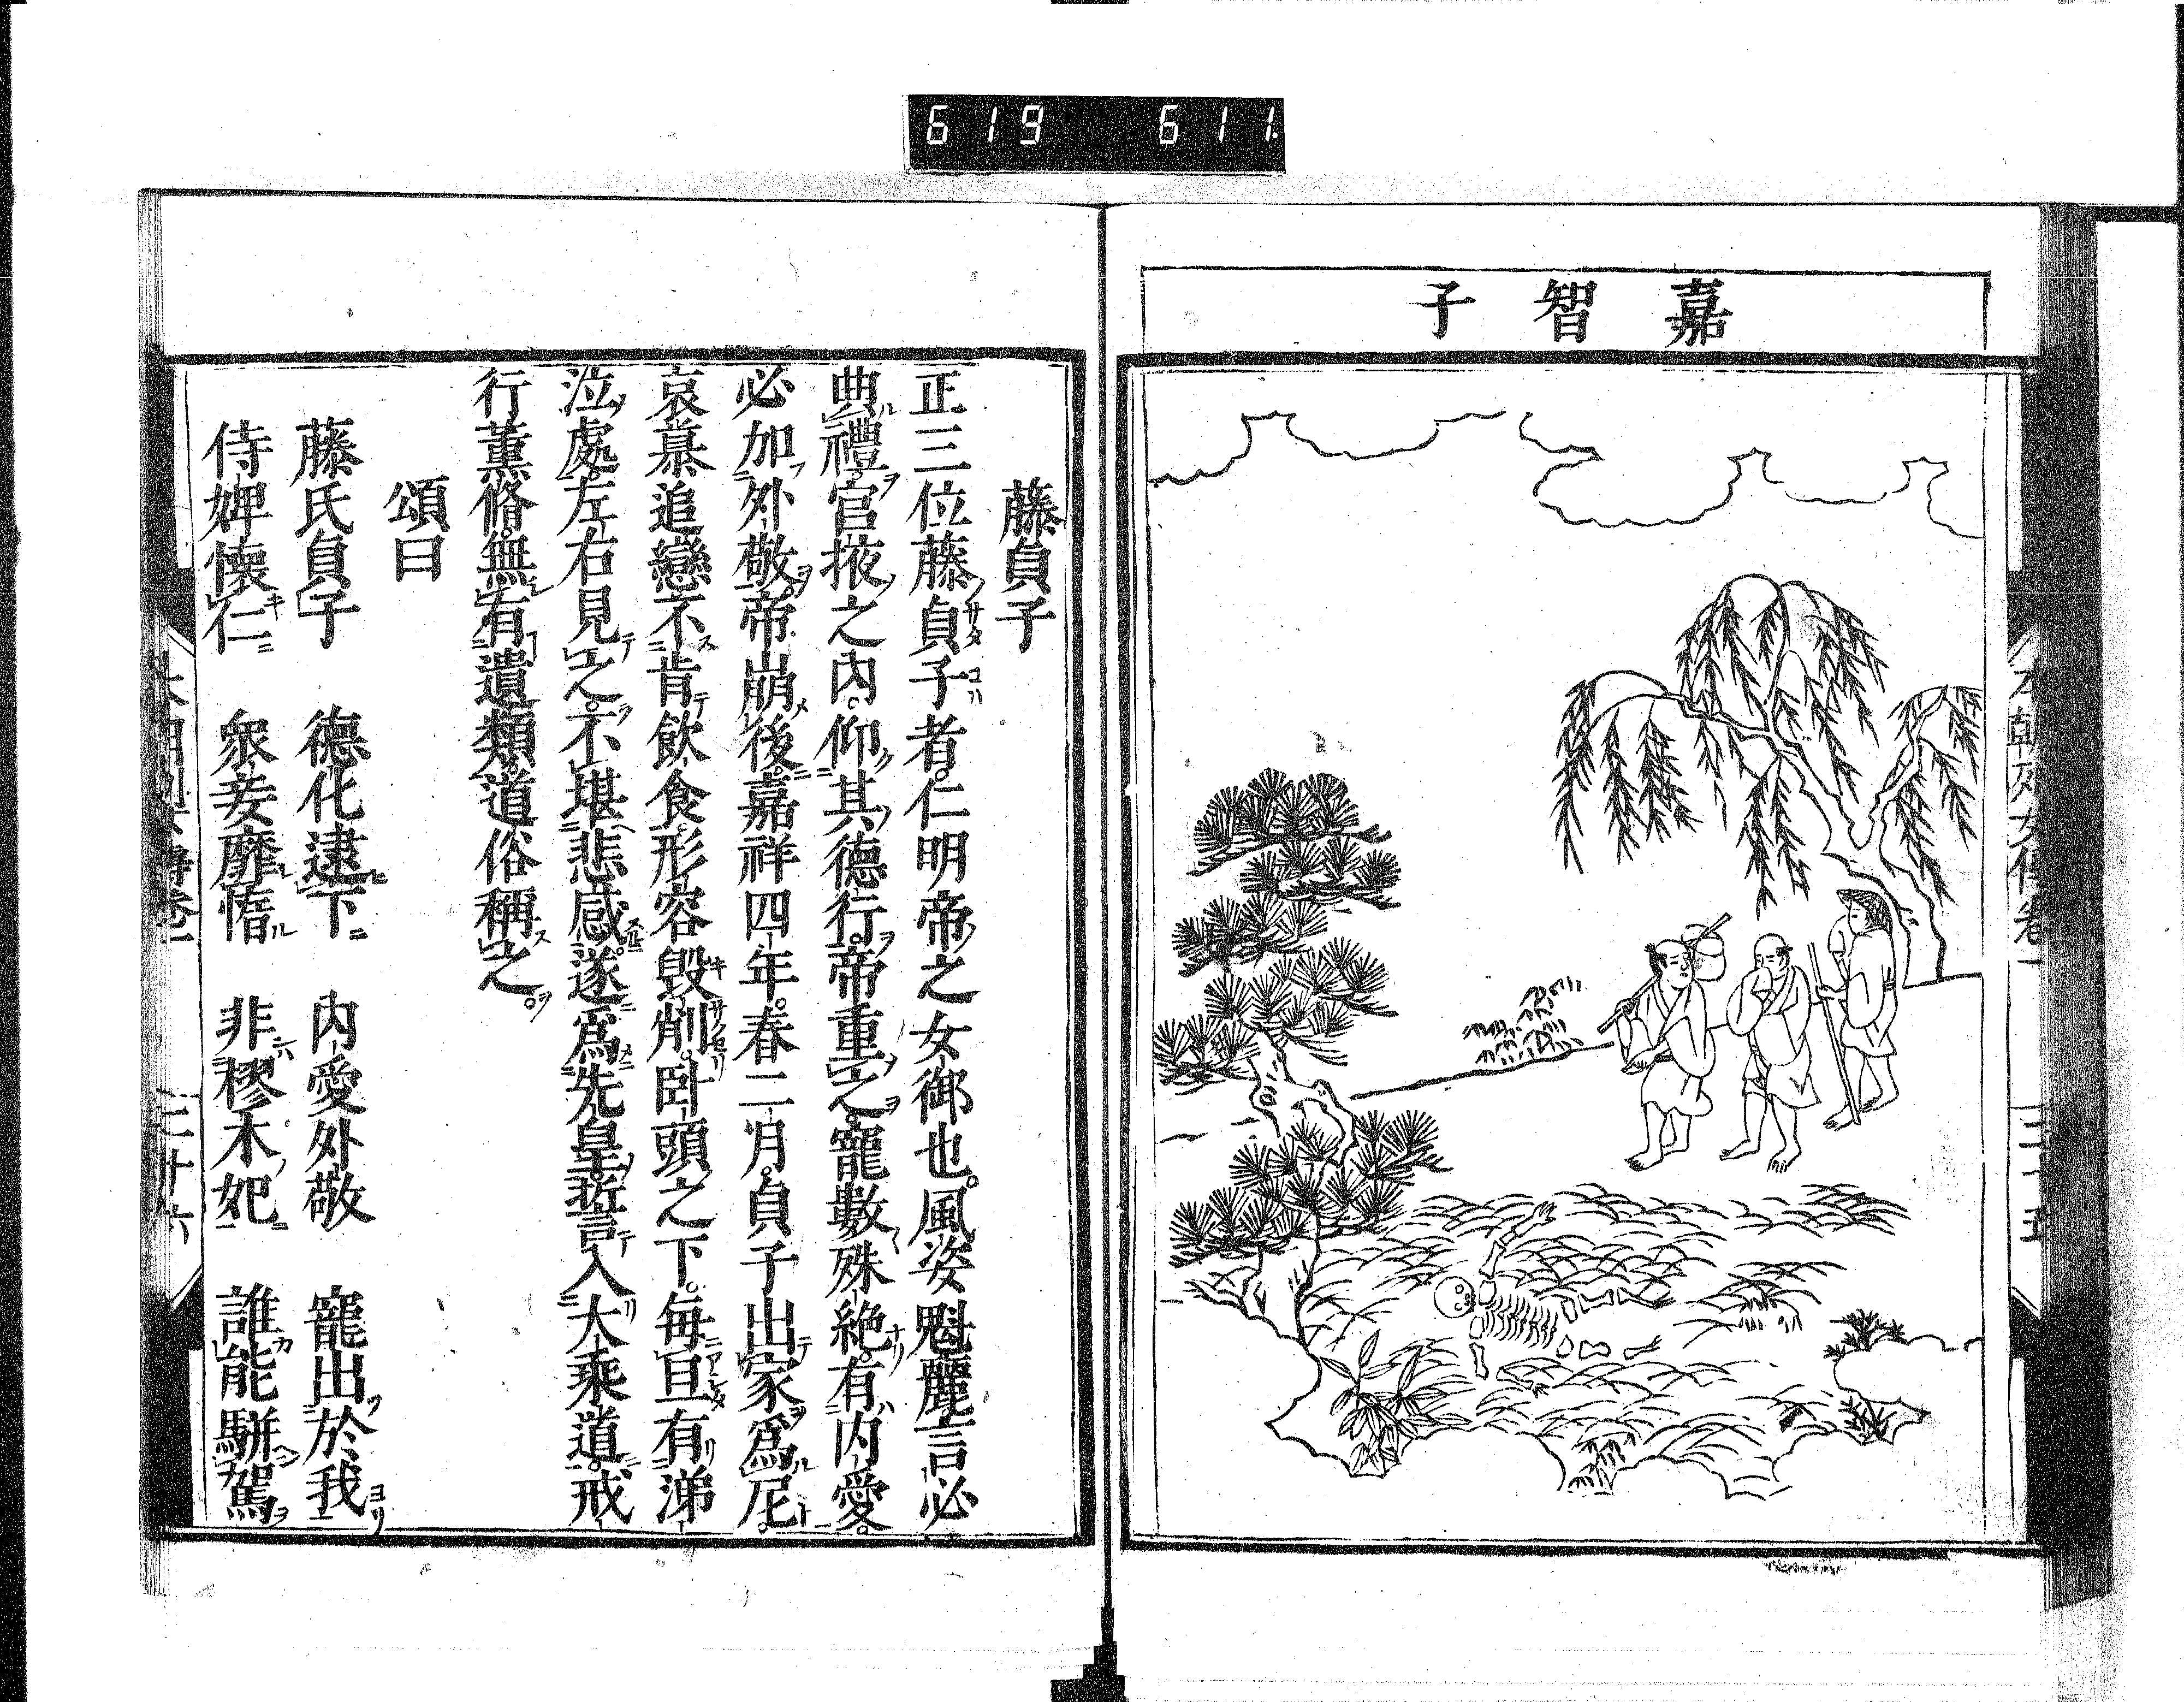 619 611.
嘉智子
藤貞子
正三位藤貞子者。仁明帝之女御也。風姿魁麗言必
典禮。宮掖之内。仰其德行。帝重之。寵數殊絶。有内愛。
必加外敬。帝崩後。嘉祥四年。春二月。貞子出家爲尼。
哀慕追戀不肯飲食。形容毀削。卧頭之下。毎旦有涕
泣處。左右見之。不堪悲感。遂爲先皇。誓入大乘道。戒
行薫脩。無有遺類。道俗稱之。
頌曰
藤氏貞子 德化逮下 内愛外敬 寵出於我
侍婢懷仁 衆妾靡惰 非樛木妃 誰能駢駕